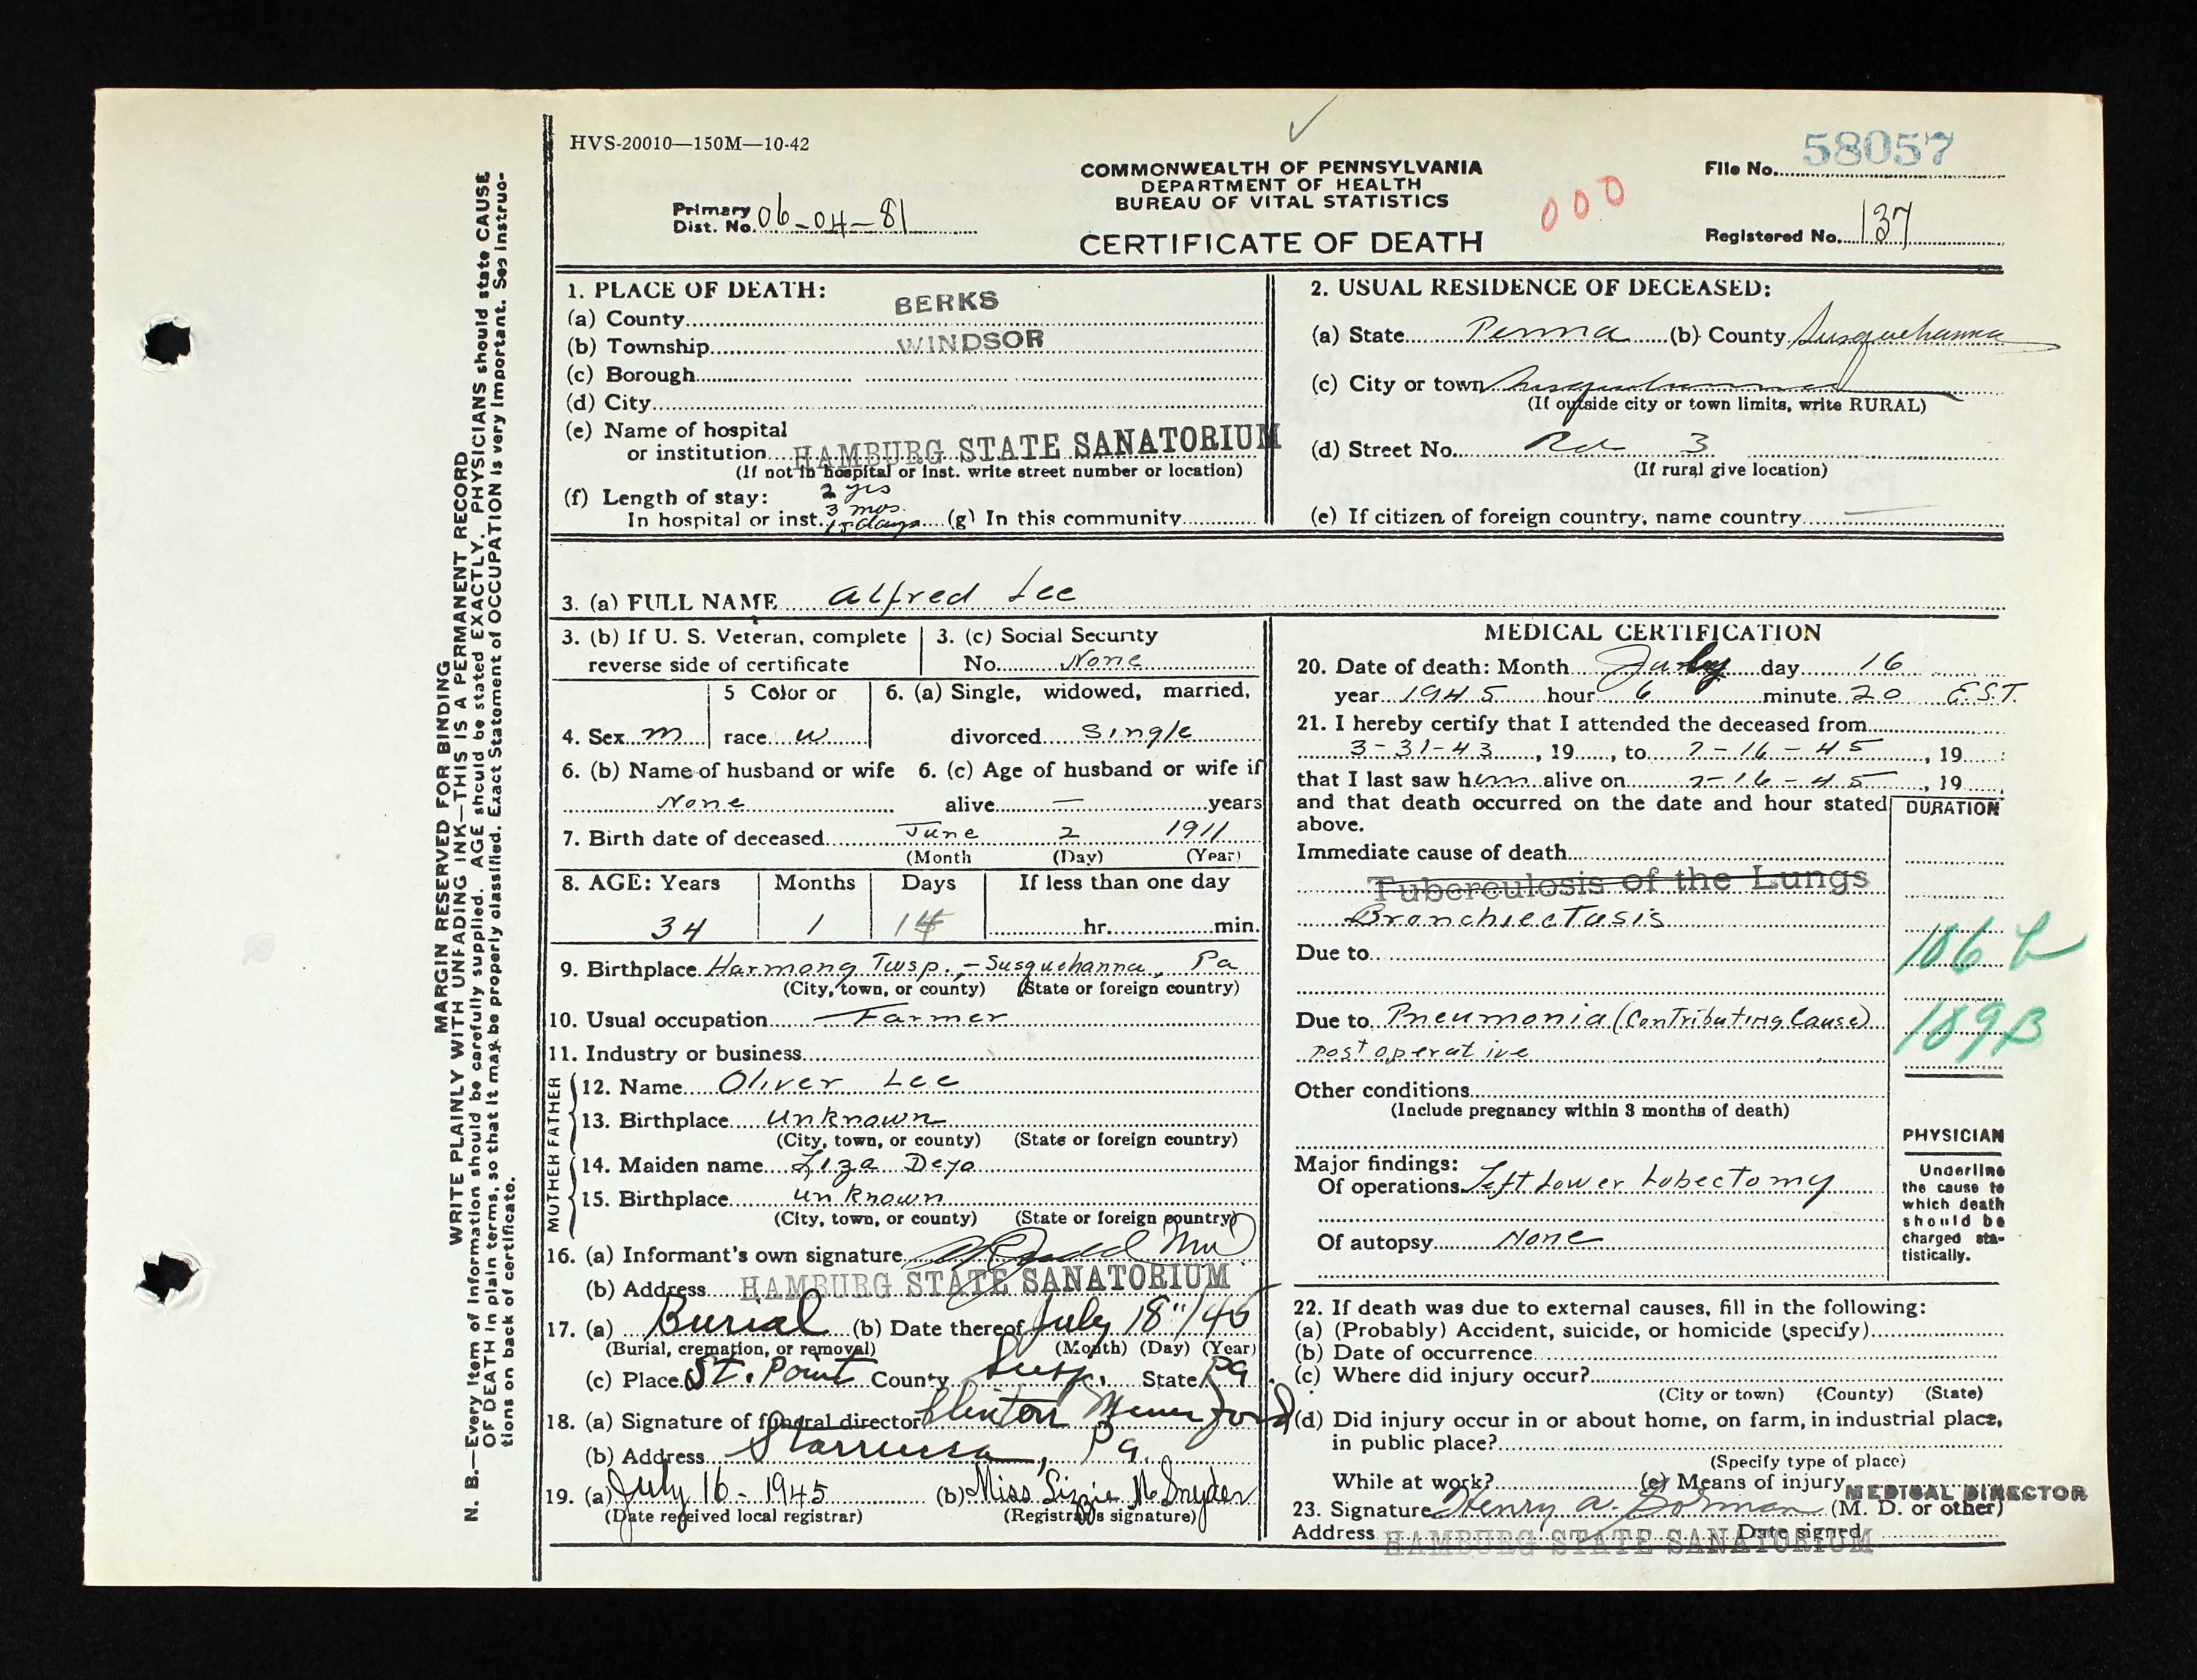 HVS-20010—150M—10-42
COMMONWEALTH OF PENNSYLVANIA
DEPARTMENT OF HEALTH
BUREAU OF VITAL STATISTICS
CERTIFICATE OF DEATH
Primary Dist. No. 06-04-81
000
File No. 58057
Registered No. 137
MARGIN RESERVED FOR BINDING
WRITE PLAINLY WITH UNFADING INK—THIS IS A PERMANENT RECORD
N. B.—Every item of information should be carefully supplied. AGE should be stated EXACTLY. PHYSICIANS should state CAUSE
OF DEATH in plain terms, so that it may be properly classified. Exact Statement of OCCUPATION is very important. See instruc-
tions on back of certificate.
1. PLACE OF DEATH:
(a) County BERKS
(b) Township WINDSOR
(c) Borough
(d) City
(e) Name of hospital
or institution HAMBURG STATE SANATORIUM
(If not in hospital or inst. write street number or location)
(f) Length of stay: 2 yrs
3 mos.
In hospital or inst. 15 days (g) In this community
2. USUAL RESIDENCE OF DECEASED:
(a) State Penna (b) County Susquehanna
(c) City or town Susquehanna
(If outside city or town limits, write RURAL)
(d) Street No. Rd 3
(If rural give location)
(e) If citizen of foreign country, name country
3. (a) FULL NAME Alfred Lee
3. (b) If U. S. Veteran, complete
reverse side of certificate
3. (c) Social Security
No. None
4. Sex m
5 Color or
race w
6. (a) Single, widowed, married,
divorced Single
6. (b) Name of husband or wife
None
6. (c) Age of husband or wife if
alive — years
7. Birth date of deceased June 2 1911
(Month (Day) (Year)
8. AGE: Years Months Days If less than one day
34 1 14 hr. min.
9. Birthplace Harmony Twsp.,-Susquehanna, Pa
(City, town, or county) (State or foreign country)
10. Usual occupation Farmer
11. Industry or business
FATHER
12. Name Oliver Lee
13. Birthplace unknown
(City, town, or county) (State or foreign country)
MOTHER
14. Maiden name Liza Deyo
15. Birthplace unknown
(City, town, or county) (State or foreign country)
16. (a) Informant's own signature
(b) Address HAMBURG STATE SANATORIUM
17. (a) Burial (b) Date thereof July 18"/45
(Burial, cremation, or removal) (Month) (Day) (Year)
(c) Place St. Point County Susq. State Pa
18. (a) Signature of funeral director Clinton
(b) Address Starrucca, Pa.
19. (a) July 16-1945 (b) Miss Lizzie M Snyder
(Date received local registrar) (Registrar's signature)
MEDICAL CERTIFICATION
20. Date of death: Month July day 16
year 1945 hour 6 minute 20 E.S.T.
21. I hereby certify that I attended the deceased from
3-31-43, 19, to 7-16-45, 19
that I last saw him alive on 7-16-45, 19
and that death occurred on the date and hour stated
above.
DURATION
Immediate cause of death
Tuberculosis of the Lungs
Bronchiectasis
106 b
Due to
Due to Pneumonia (Contributing Cause)
post operative
109B
Other conditions
(Include pregnancy within 3 months of death)
Major findings:
Of operations Left Lower Lobectomy
Of autopsy None
PHYSICIAN
Underline
the cause to
which death
should be
charged sta-
tistically.
22. If death was due to external causes, fill in the following:
(a) (Probably) Accident, suicide, or homicide (specify)
(b) Date of occurrence
(c) Where did injury occur?
(City or town) (County) (State)
(d) Did injury occur in or about home, on farm, in industrial place,
in public place?
(Specify type of place)
While at work? (e) Means of injury
MEDICAL DIRECTOR
23. Signature Henry A. Gorman (M. D. or other)
Address HAMBURG STATE SANATORIUM Date signed